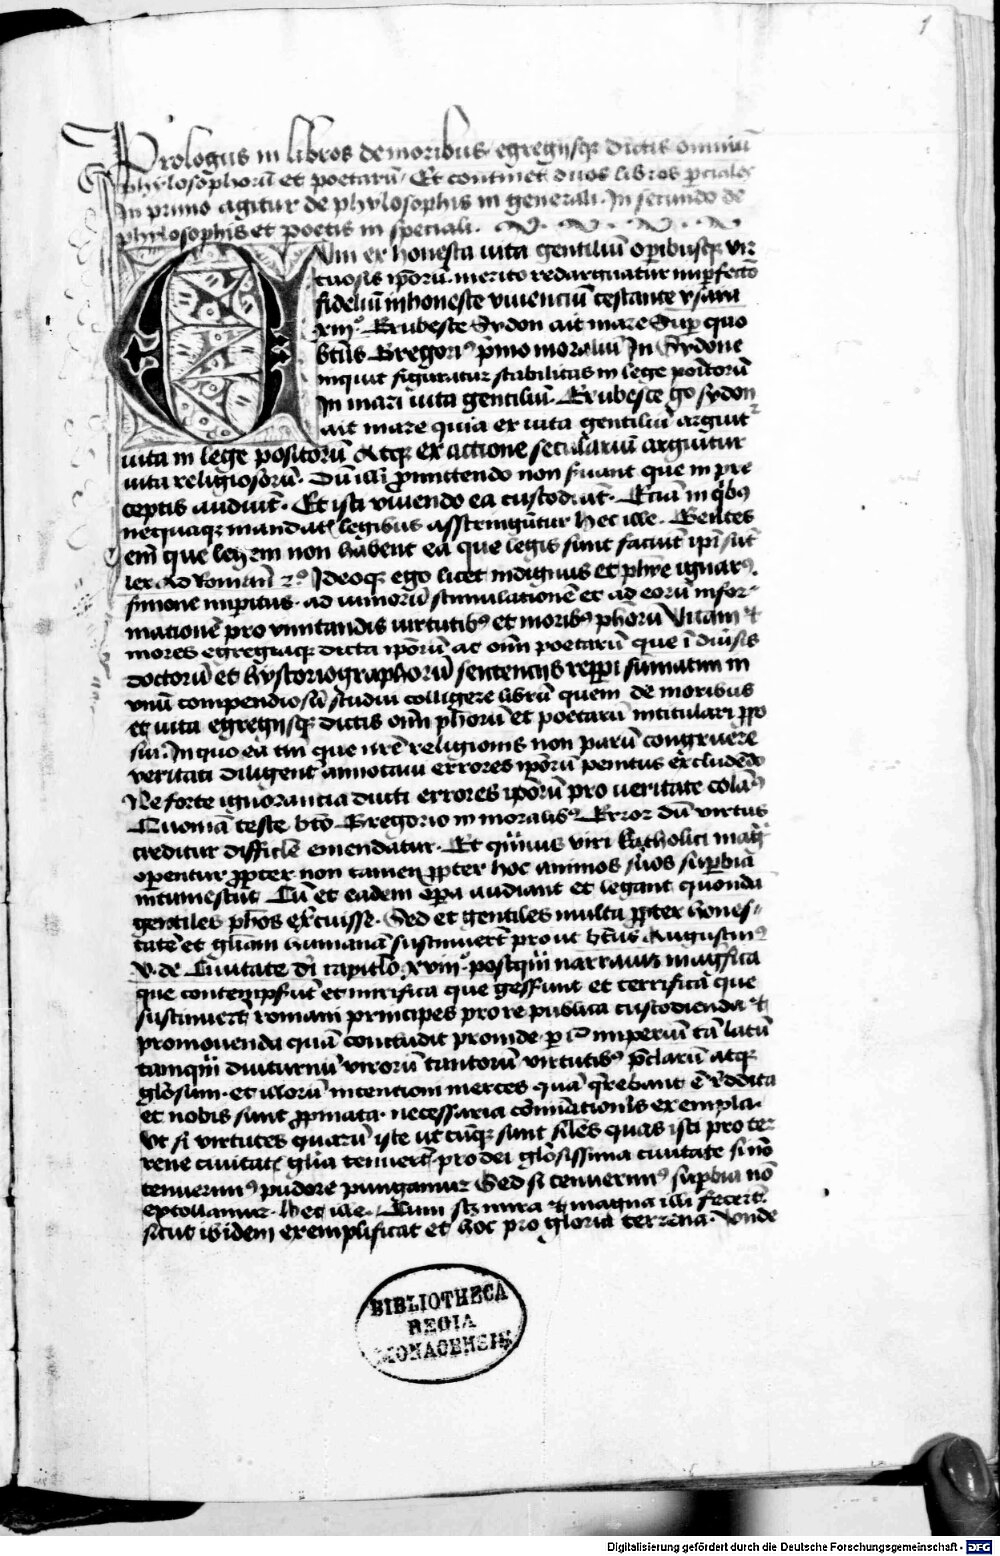 1
Prologus in libros de moribus egregijsq dictis omniū
phylosophorū et poetarū Et continet duos libros p̄ciales
In primo agitur de phylosophis in generali. In secundo de
phylosophis et poetis in speciali.
Cum ex honesta uita gentiliū operibusq vir
tuosis ip̄orū merito redarguatur imperfectō
fideliū inhoneste viuenciū testante ysaia
xxiijº Erubesce Sydon ait mare Super quo
btūs Gregoriꝰ p̄mo moraliū In Sydone
inquit figuratur stabilitas in lege positorū
In mari uita gentiliū. Erubesce go sydon
ait mare quia ex uita gentiliū arguitᷣ
uita in lege positorū Atqꝫ ex actione seculariū arguitur
uita religiosorū. Dū illi promittendo non seruant que in pre
ceptis audiūt. Et isti viuendo ea custodiūt. Eciā in qbꝰ
nequaqꝫ mandatis legibus asstringūtur Hec ille. Gentes
em̄ que legem non habent ea que legis sunt faciūt ip̄i sūt
lex Ad Roman̄ 2º Ideoqꝫ ego licet indignus et phre ignarꝰ
sermone imperitus. ad iuniorū stimulationē et ad eorū infor
mationē pro imitandis uirtutibꝰ et moribꝰ phorū Vitam et
mores egregiaqꝫ dicta ip̄orū ac om̄ poetarū que ī diūsis
doctorū et hystoriographorū sentencijs repperi sumatim in
vnū compendiosū studui colligere librū quem de moribus
et uita egregijsqꝫ dictis om̄ phorū et poetarū intitulari ꝓpo
sui. In quo ea tm̄ que nr̄e religionis non parū congruere
veritati diligent̄ annotaui errores ip̄orū penitus excludēdo
Ne forte ignorancia ducti errores ip̄orū pro ueritate colāt
Quoniā teste bto Gregorio in moralibꝰ Error dū virtus
creditur difficile emendatur. Et quiuus viri katholici magᷓ
operentur ꝓpter non tamen ꝓpter hoc animos suos superbia
intumescūt Cū et eadem opera audiant et legant quondā
gentiles phos exercuisse. Sed et gentiles multa ꝓpter hones
tatē et gloriam humanā sustinuerūt prout btūs Augustinꝰ
v. de Ciuitate dī capitlo xviijº postqᷓ narrauit magnifica
que contempserūt et mirifica que gesserunt et terrifica que
sustinuerūt romani principes pro re publica custodienda et
promouenda quā concludit proinde per id imperiū tā latū
tamqᷓ diuturnū virorū tantorū virtutibꝰ p̄clarū atqꝫ
gl̄osum. et illorū intentioni merces quā q̄rebant ē reddita
et nobis sunt ꝓposita necessaria com̄nitionis exempla.
Ut si virtutes quarū iste ut cūqꝫ sunt siles quas isti pro ter
rene ciuitatis gl̄ia tenuerūt pro dei gl̄osissima ciuitate si nō
tenuerimꝰ pudore pungamur Sed si tenuerimꝰ superbia nō
extollamur. Hec ille. Cum mira et magna illi fecerūt
sicut ibidem exemplificat et hoc pro gloria terrena. Vnde
BIBLIOTHECA
REGIA
MONACENSIS
Digitalisierung gefördert durch die Deutsche Forschungsgemeinschaft - DFG